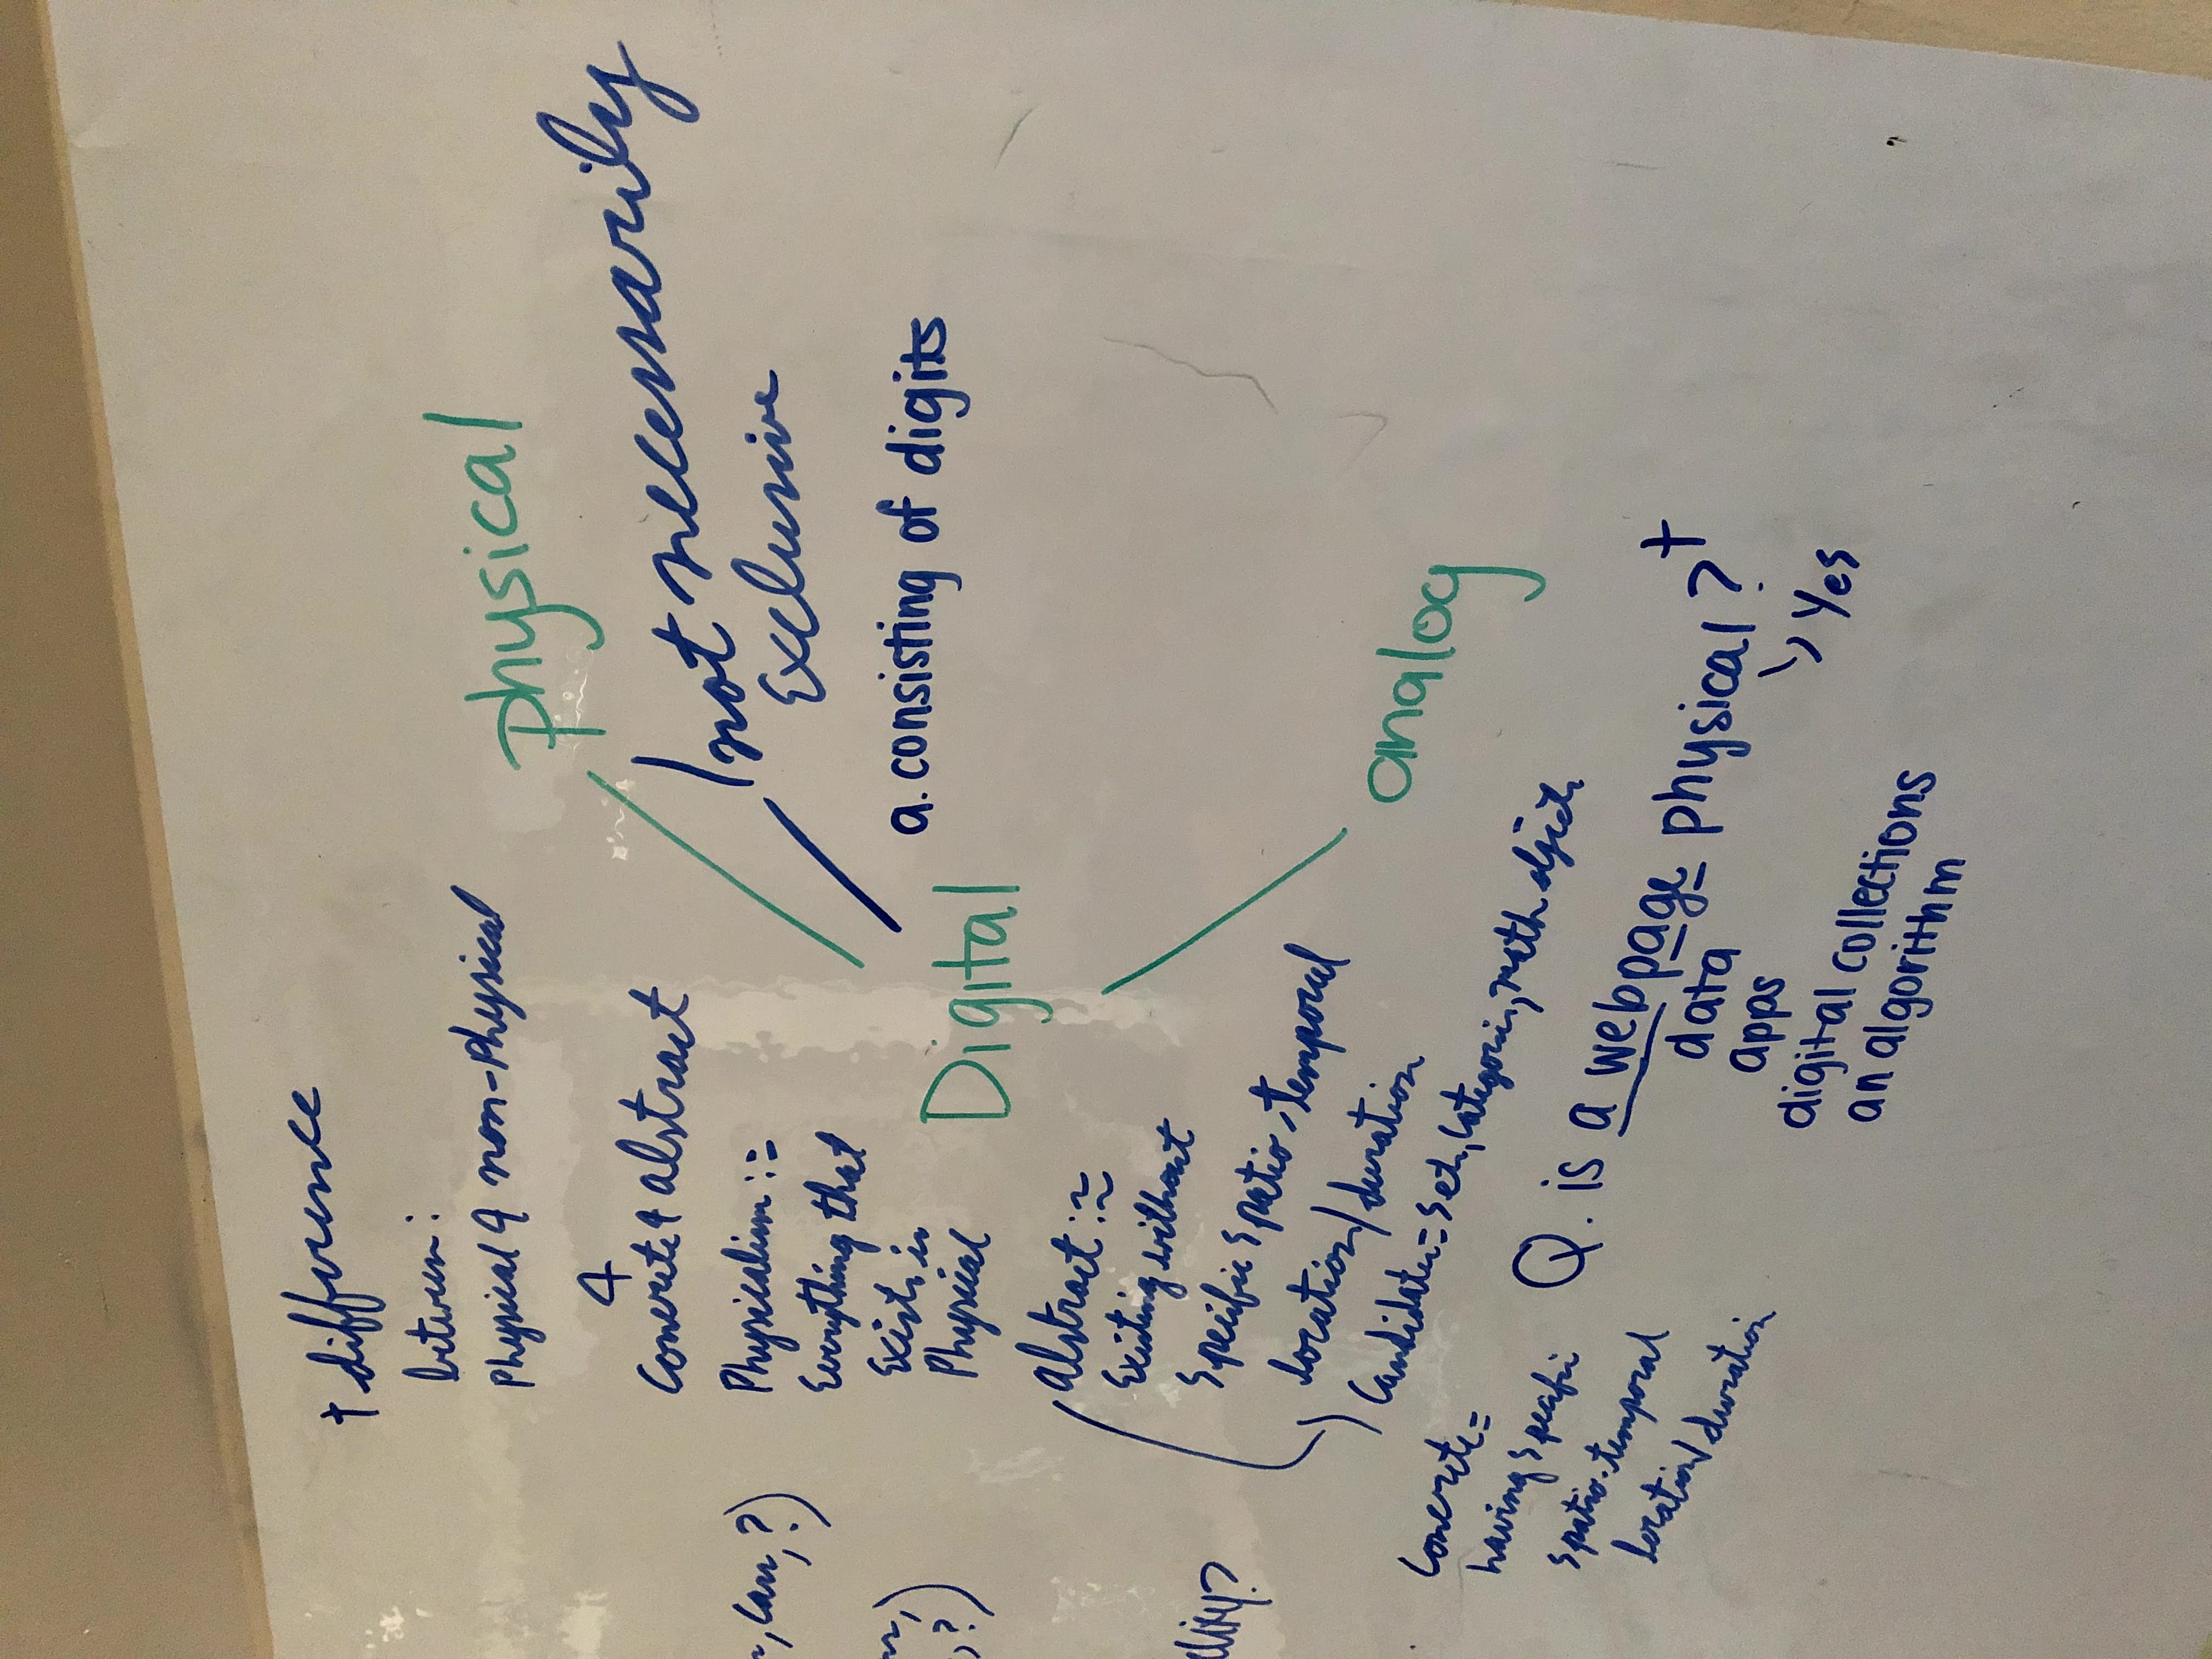 † difference
between:
Physical & non-Physical
&
Concrete & abstract
Physicalism :=
Everything that
Exists is
Physical
abstract :≈
Existing without
Specific Spatio-temporal
location/duration
Candidates = Sets, Categories, math objects
Concrete =
having specific
spatio-temporal
location/duration
, Carr, ?)
, ?)
physical
not necessarily
Exclusive
a. consisting of digits
Digital
analog
Q. is a webpage physical? †
data
apps
digital collections
an algorithm
Yes